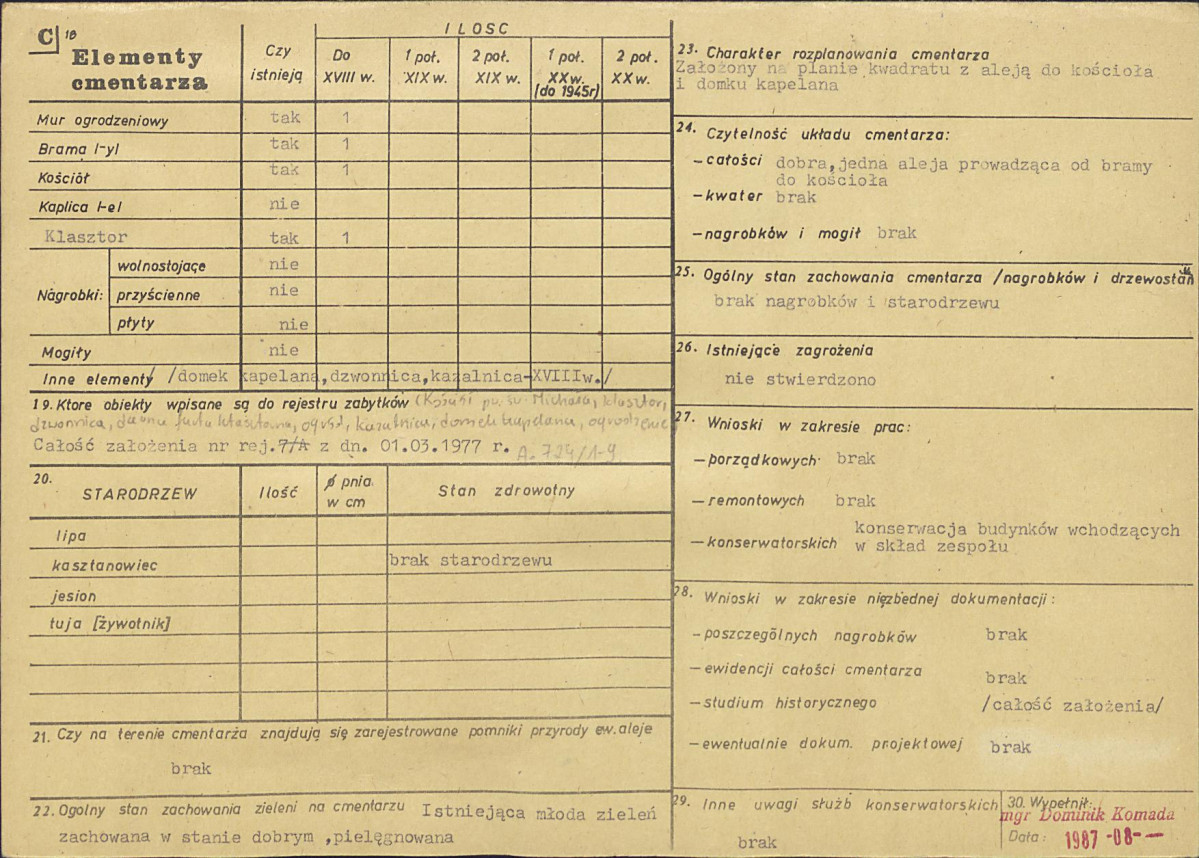 C 18
Elementy
cmentarza
Czy
istnieją
ILOSC
Do
XVIII w.
1 poł.
XIX w.
2 poł.
XIX w.
1 poł.
XX w.
(do 1945r)
2 poł.
XX w.
Mur ogrodzeniowy tak 1
Brama /-y/ tak 1
Kościół tak 1
Kaplica /-e/ nie
Klasztor tak 1
Nagrobki:
wolnostojące nie
przyścienne nie
płyty nie
Mogiły nie
Inne elementy /domek kapelana,dzwonnica,kazalnica-XVIIIw./
19. Ktore obiekty wpisane są do rejestru zabytków (Kościół pw. św. Michała, klasztor,
dzwonnica, dawna furta klasztorna, ogród, kazalnica, domek kapelana, ogrodzenie)
Całość założenia nr rej.7/A z dn. 01.03.1977 r. A-724/1-9
20.
STARODRZEW
Ilość
ø pnia
w cm
Stan zdrowotny
lipa
kasztanowiec brak starodrzewu
jesion
tuja [żywotnik]
21. Czy na terenie cmentarza znajdują się zarejestrowane pomniki przyrody ew. aleje
brak
22. Ogolny stan zachowania zieleni na cmentarzu Istniejąca młoda zieleń
zachowana w stanie dobrym ,pielęgnowana
23. Charakter rozplanowania cmentarza
Założony na planie kwadratu z aleją do kościoła
i domku kapelana
24. Czytelność układu cmentarza:
- całości dobra,jedna aleja prowadząca od bramy
do kościoła
- kwater brak
- nagrobków i mogił brak
25. Ogólny stan zachowania cmentarza /nagrobków i drzewostanu
brak nagrobków i starodrzewu
26. Istniejące zagrożenia
nie stwierdzono
27. Wnioski w zakresie prac:
- porządkowych brak
- remontowych brak
- konserwatorskich konserwacja budynków wchodzących
w skład zespołu
28. Wnioski w zakresie niezbednej dokumentacji:
- poszczególnych nagrobków brak
- ewidencji całości cmentarza brak
- studium historycznego /całość założenia/
- ewentualnie dokum. projektowej brak
29. Inne uwagi służb konserwatorskich
brak
30. Wypełnił:
mgr Dominik Komada
Data: 1987 -08- -